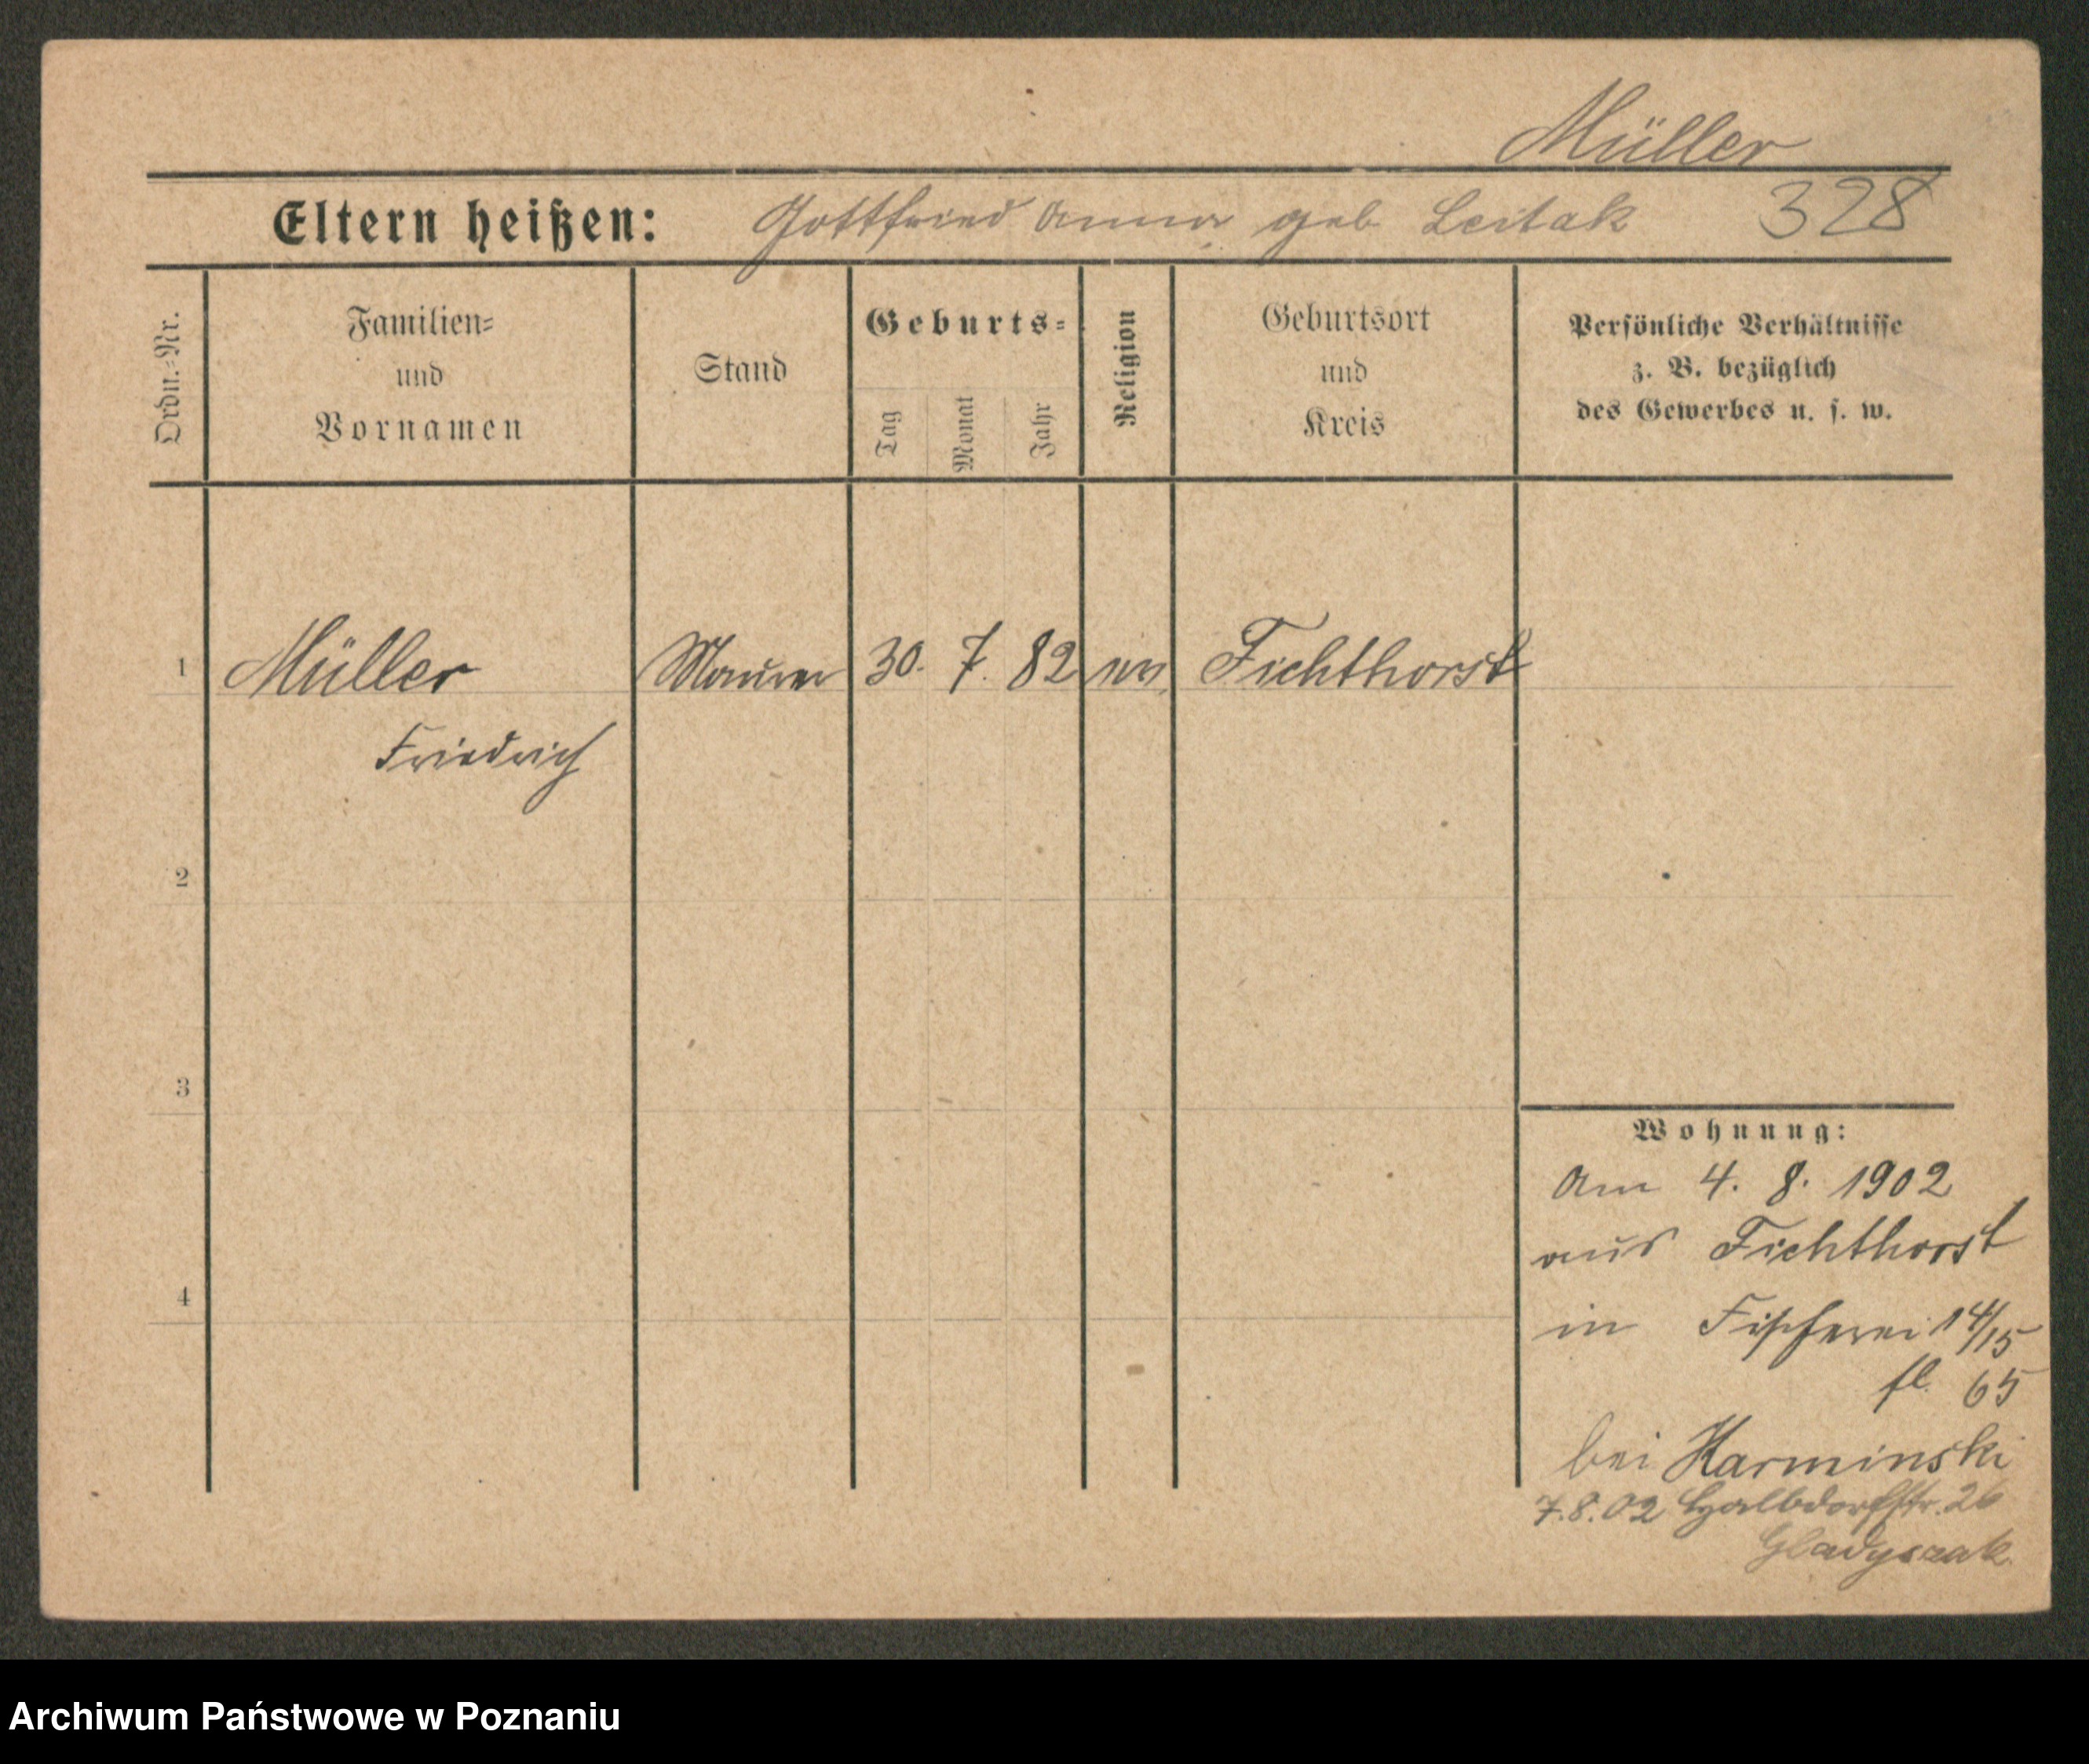 Müller
Eltern heißen: Gottfried Anna geb Leitak 328
Ordn.-Nr.
Familien-
und
Vornamen
Stand
Geburts-
Tag
Monat
Jahr
Religion
Geburtsort
und
Kreis
Persönliche Verhältnisse
z. B. bezüglich
des Gewerbes u. s. w.
1 Müller Maurer 30. 7. 82 ev. Fichthorst
Friedrich
2
3
4
Wohnung:
Am 4. 8. 1902
aus Fichthorst
in Fischerei 14/15
fl. 65
bei Karminski
7.8.02 Halbdorfstr. 26
Gladyszak
Archiwum Państwowe w Poznaniu